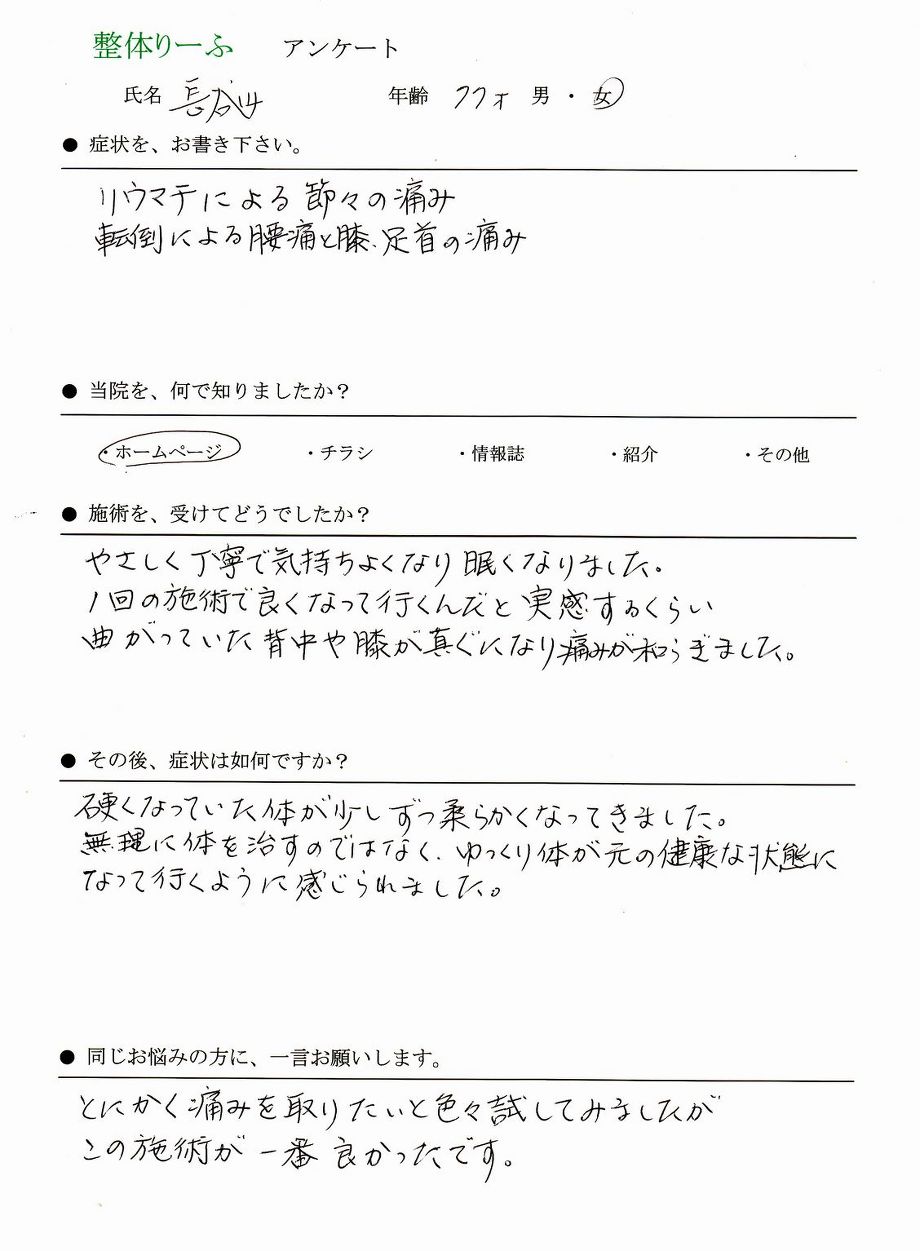 整体りーふ アンケート
氏名 長谷川 年齢 77才 男 ・ 女
● 症状を、お書き下さい。
リウマチによる節々の痛み
転倒による腰痛と膝、足首の痛み
● 当院を、何で知りましたか?
・ホームページ ・チラシ ・情報誌 ・紹介 ・その他
● 施術を、受けてどうでしたか?
やさしく丁寧で気持ちよくなり眠くなりました。
1回の施術で良くなって行くんだと実感するくらい
曲がっていた背中や膝が真ぐになり痛みが和らぎました。
● その後、症状は如何ですか?
硬くなっていた体が少しずつ柔らかくなってきました。
無理に体を治すのではなく、ゆっくり体が元の健康な状態に
なって行くように感じられました。
● 同じお悩みの方に、一言お願いします。
とにかく痛みを取りたいと色々試してみましたが
この施術が一番良かったです。